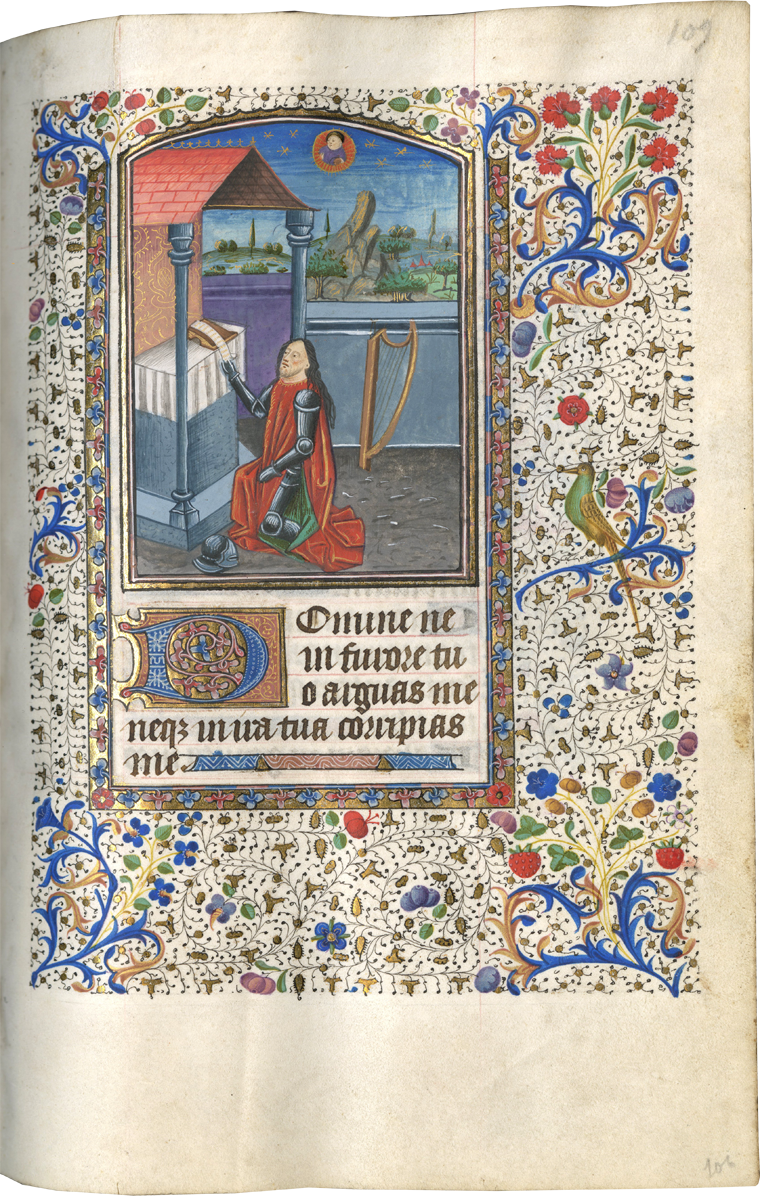 109
Domine ne
in furore tu
o arguas me
neqz in ira tua corripias
me
106